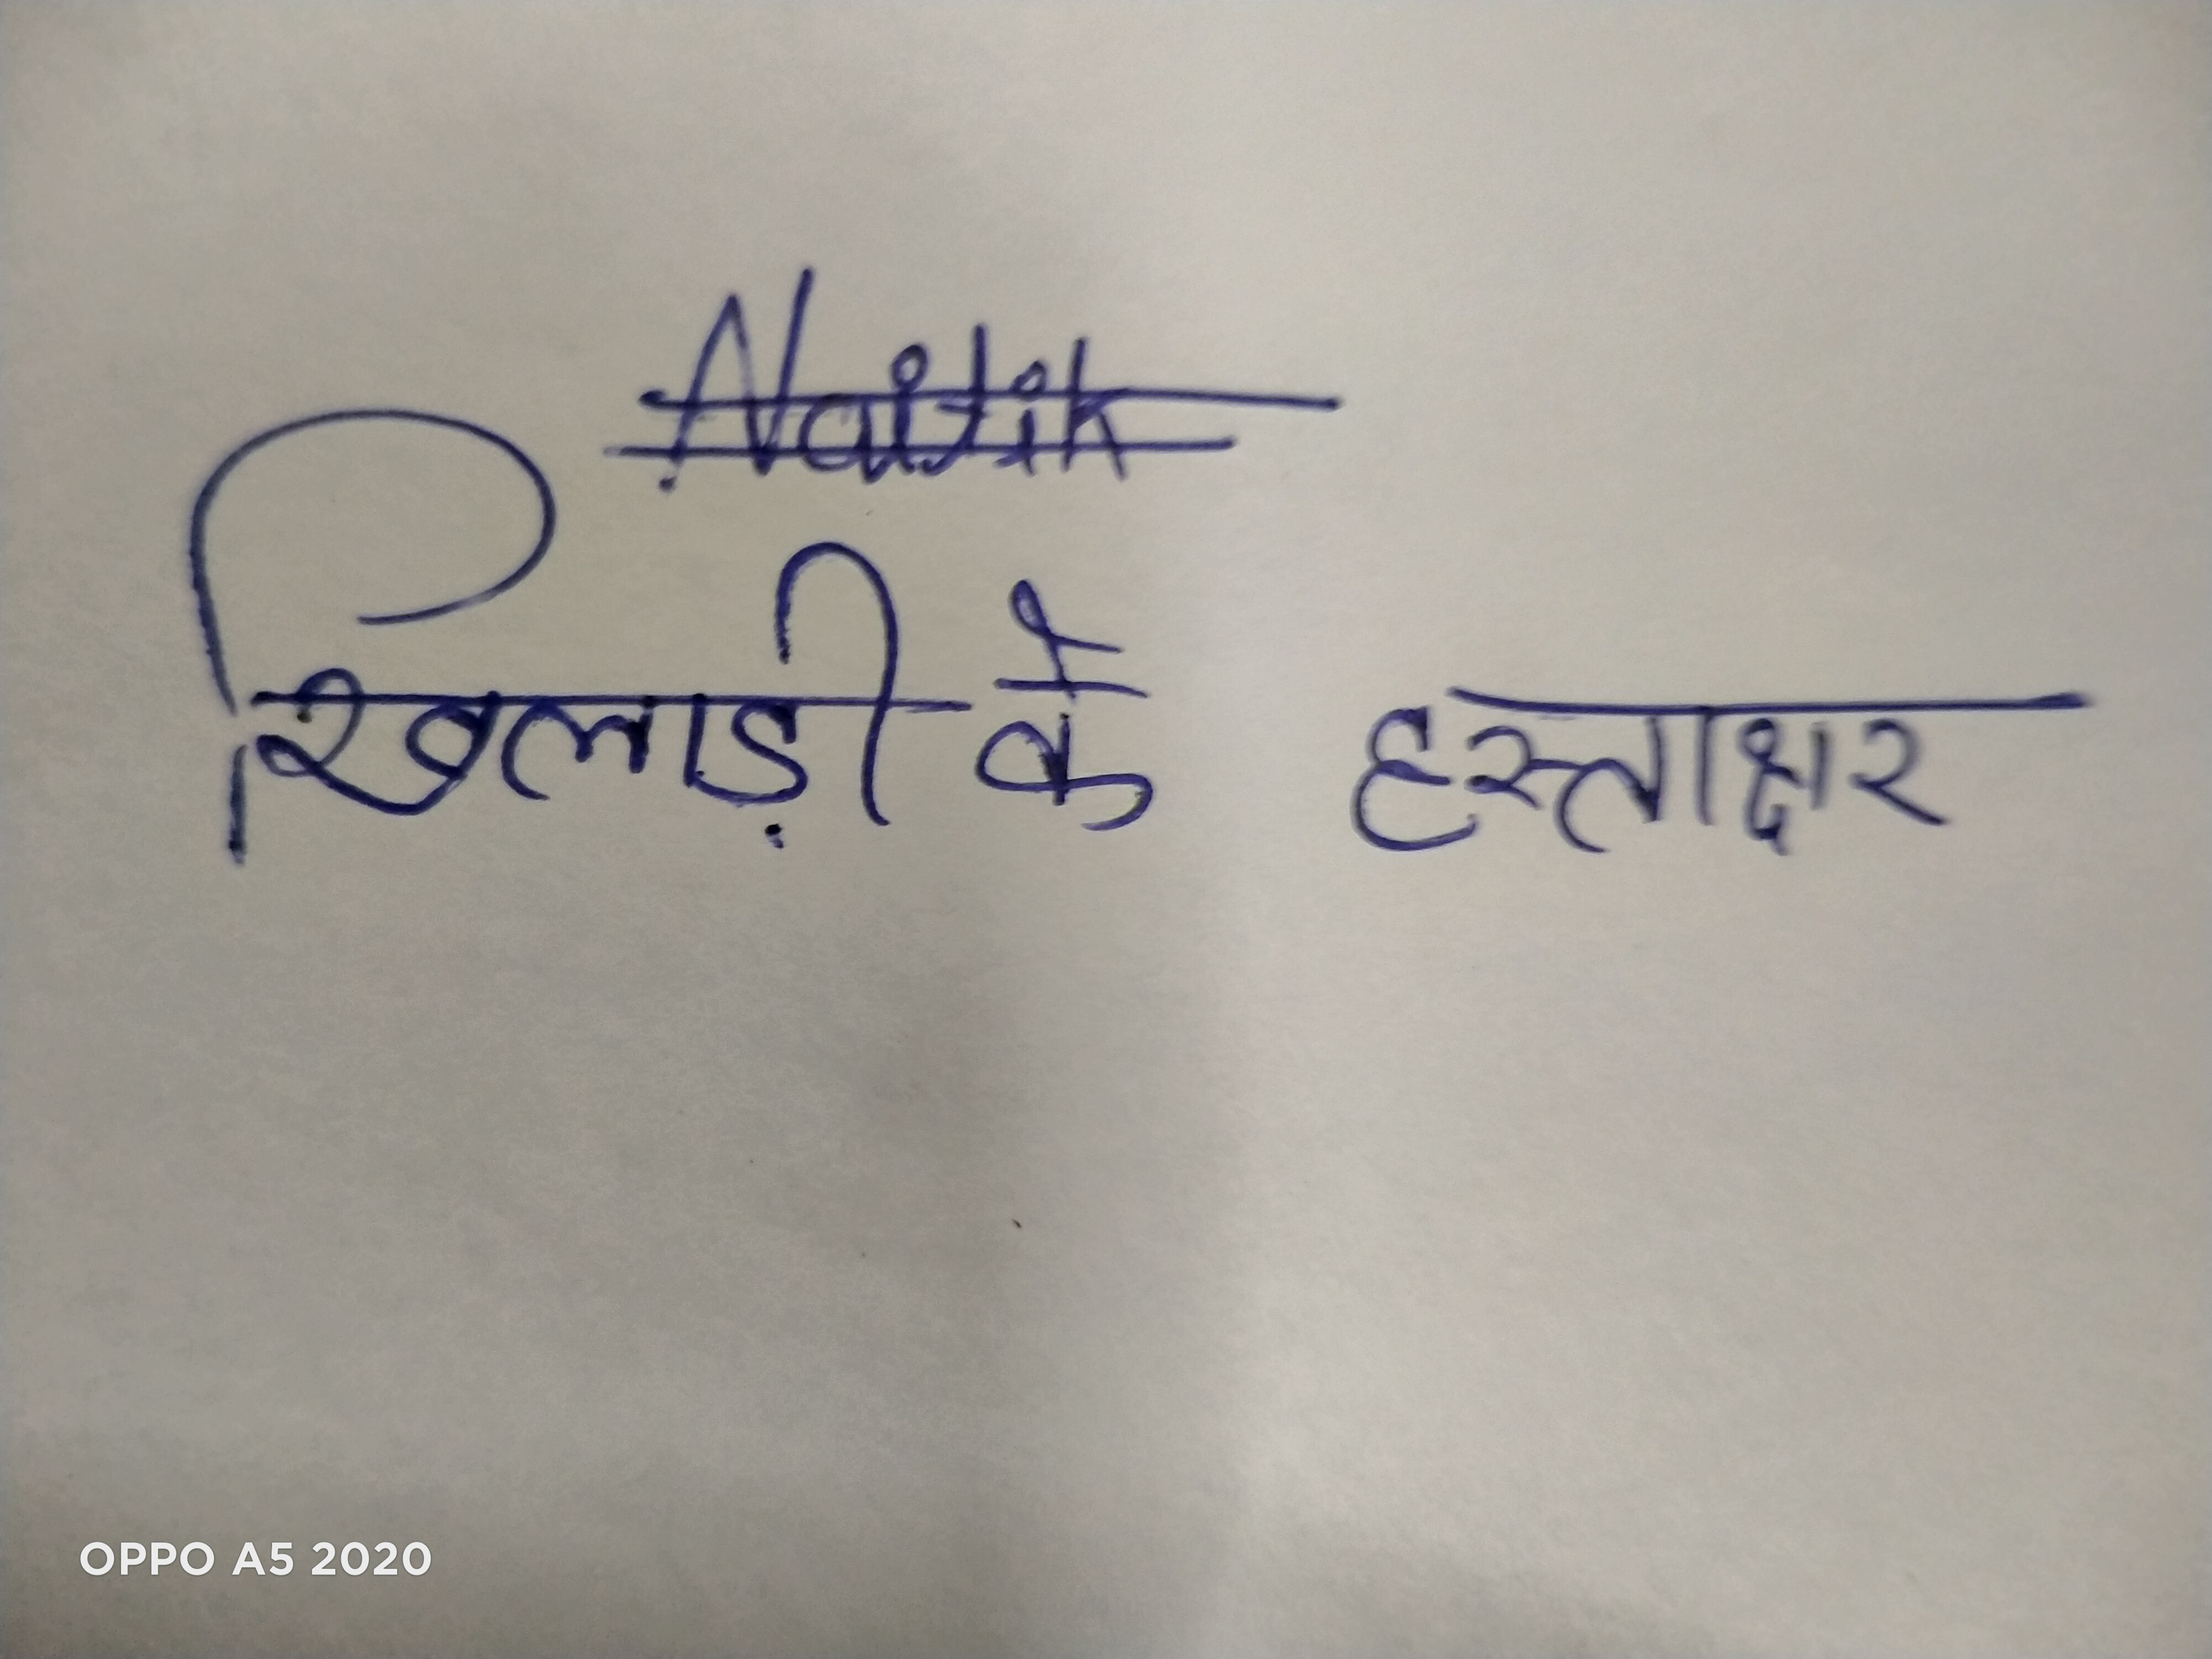 Naitik
खिलाड़ी के हस्ताक्षर
OPPO A5 2020